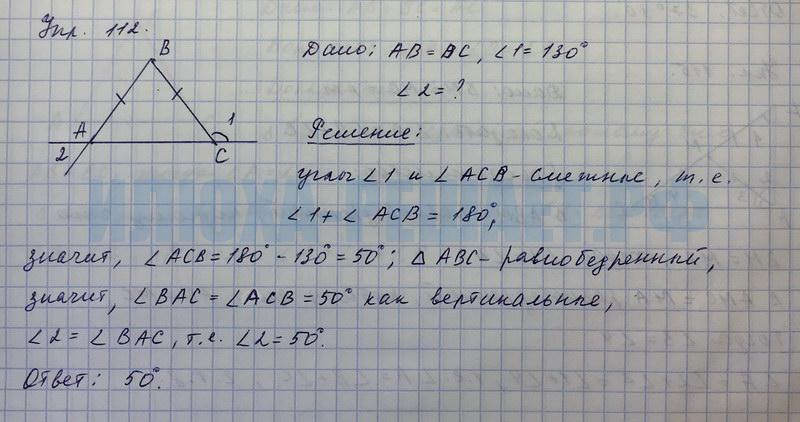 Упр. 112.
B
A
C
1
2
Дано: AB = BC, ∠1 = 130°
∠2 = ?
Решение:
углы ∠1 и ∠ACB - смежные, т.е.
∠1 + ∠ACB = 180°,
значит, ∠ACB = 180° - 130° = 50°; △ABC - равнобедренный,
значит, ∠BAC = ∠ACB = 50° как вертикальные,
∠2 = ∠BAC, т.е. ∠2 = 50°.
Ответ: 50°.
ИЛЮХА-РЕШАЕТ.РФ